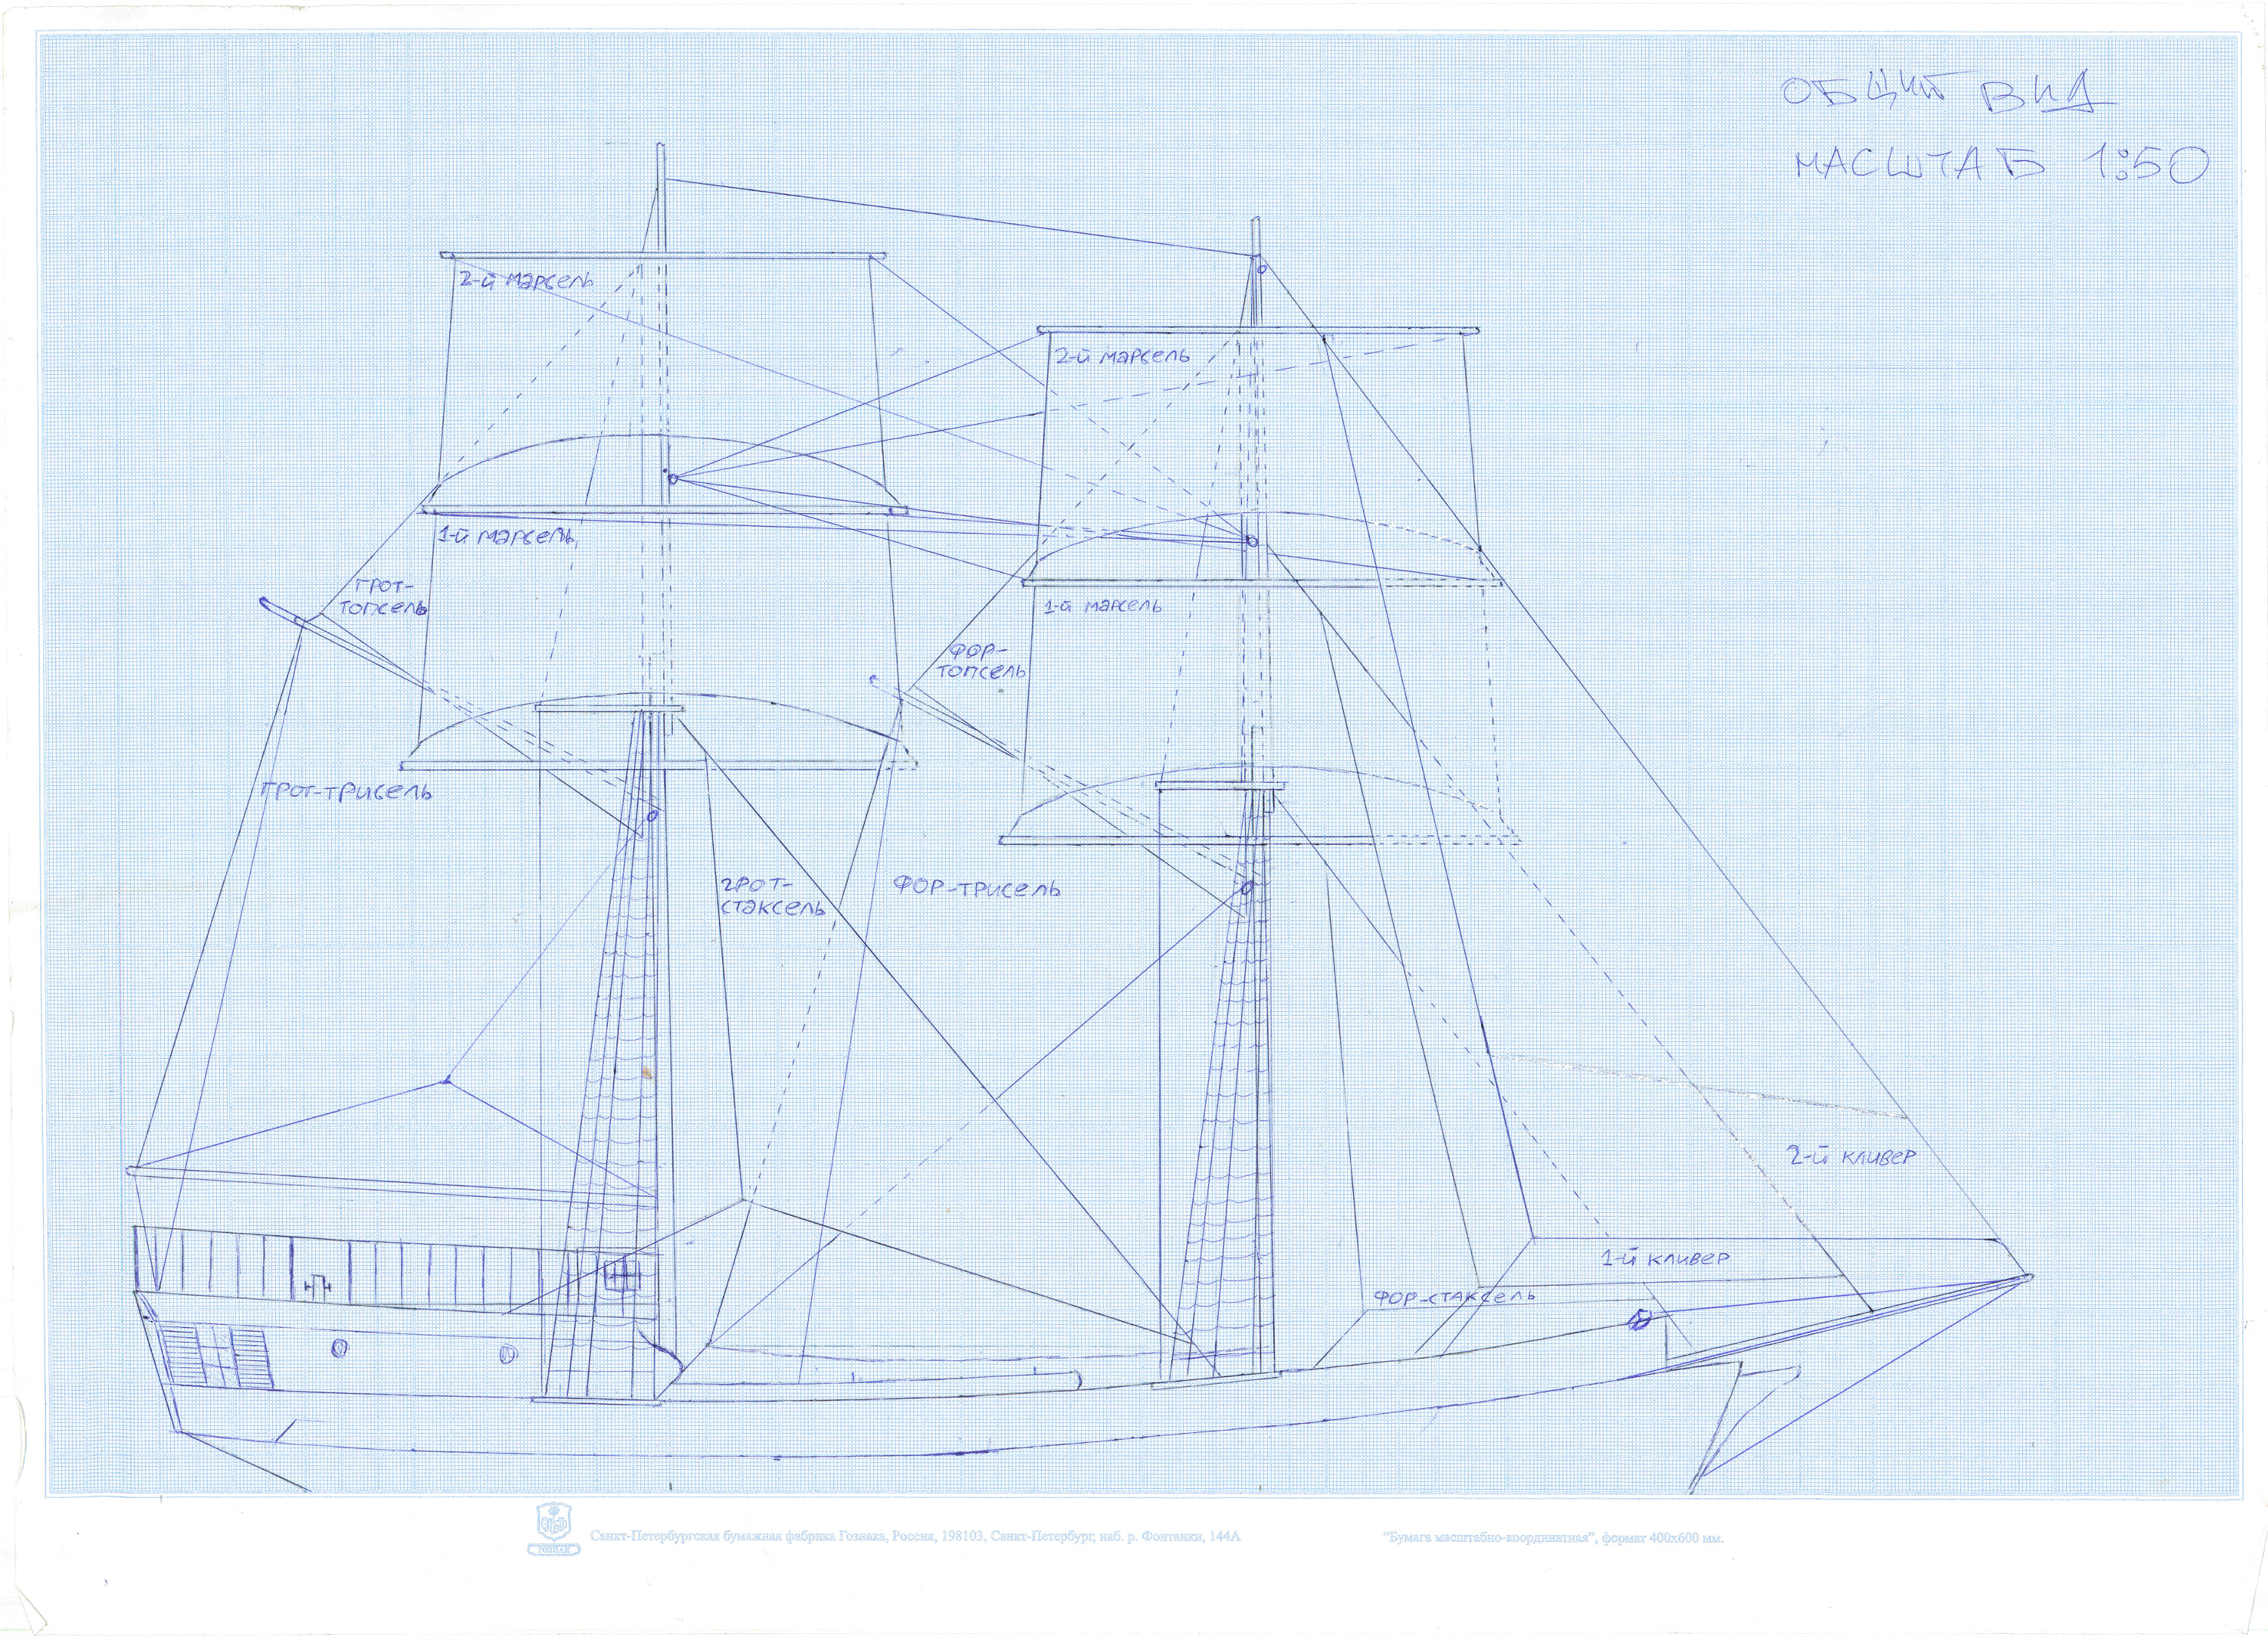 ОБЩИЙ ВИД
МАСШТАБ 1:50
2-й марсель
2-й марсель
1-й марсель
ГРОТ-
ТОПСЕЛЬ
1-й марсель
ФОР-
ТОПСЕЛЬ
ГРОТ-ТРИСЕЛЬ
ГРОТ-
СТАКСЕЛЬ
ФОР-ТРИСЕЛЬ
2-й КЛИВЕР
1-й КЛИВЕР
ФОР-СТАКСЕЛЬ
ГОЗНАК
Санкт-Петербургская бумажная фабрика Гознака, Россия, 198103, Санкт-Петербург, наб. р. Фонтанки, 144А
"Бумага масштабно-координатная", формат 400х600 мм.